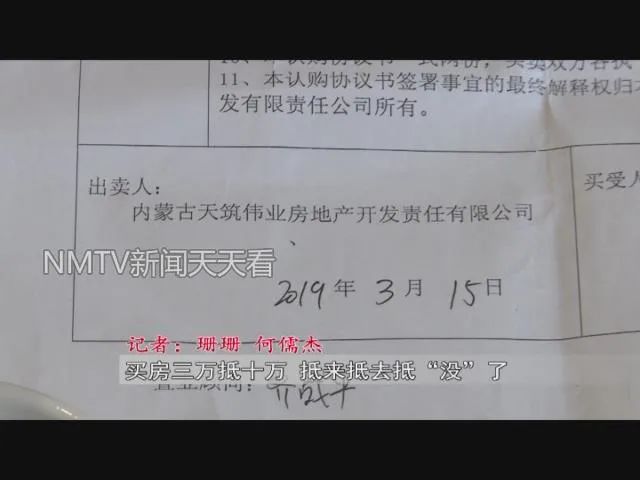 10、本认购协议书一式两份，买卖双方各执
11、本认购协议书签署事宜的最终解释权归
发有限责任公司所有。
出卖人：
买受人
内蒙古天筑伟业房地产开发责任有限公司
、
NMTV新闻天天看
2019年 3月 15日
记者：珊珊 何儒杰
买房三万抵十万 抵来抵去抵“没”了
置业顾问：